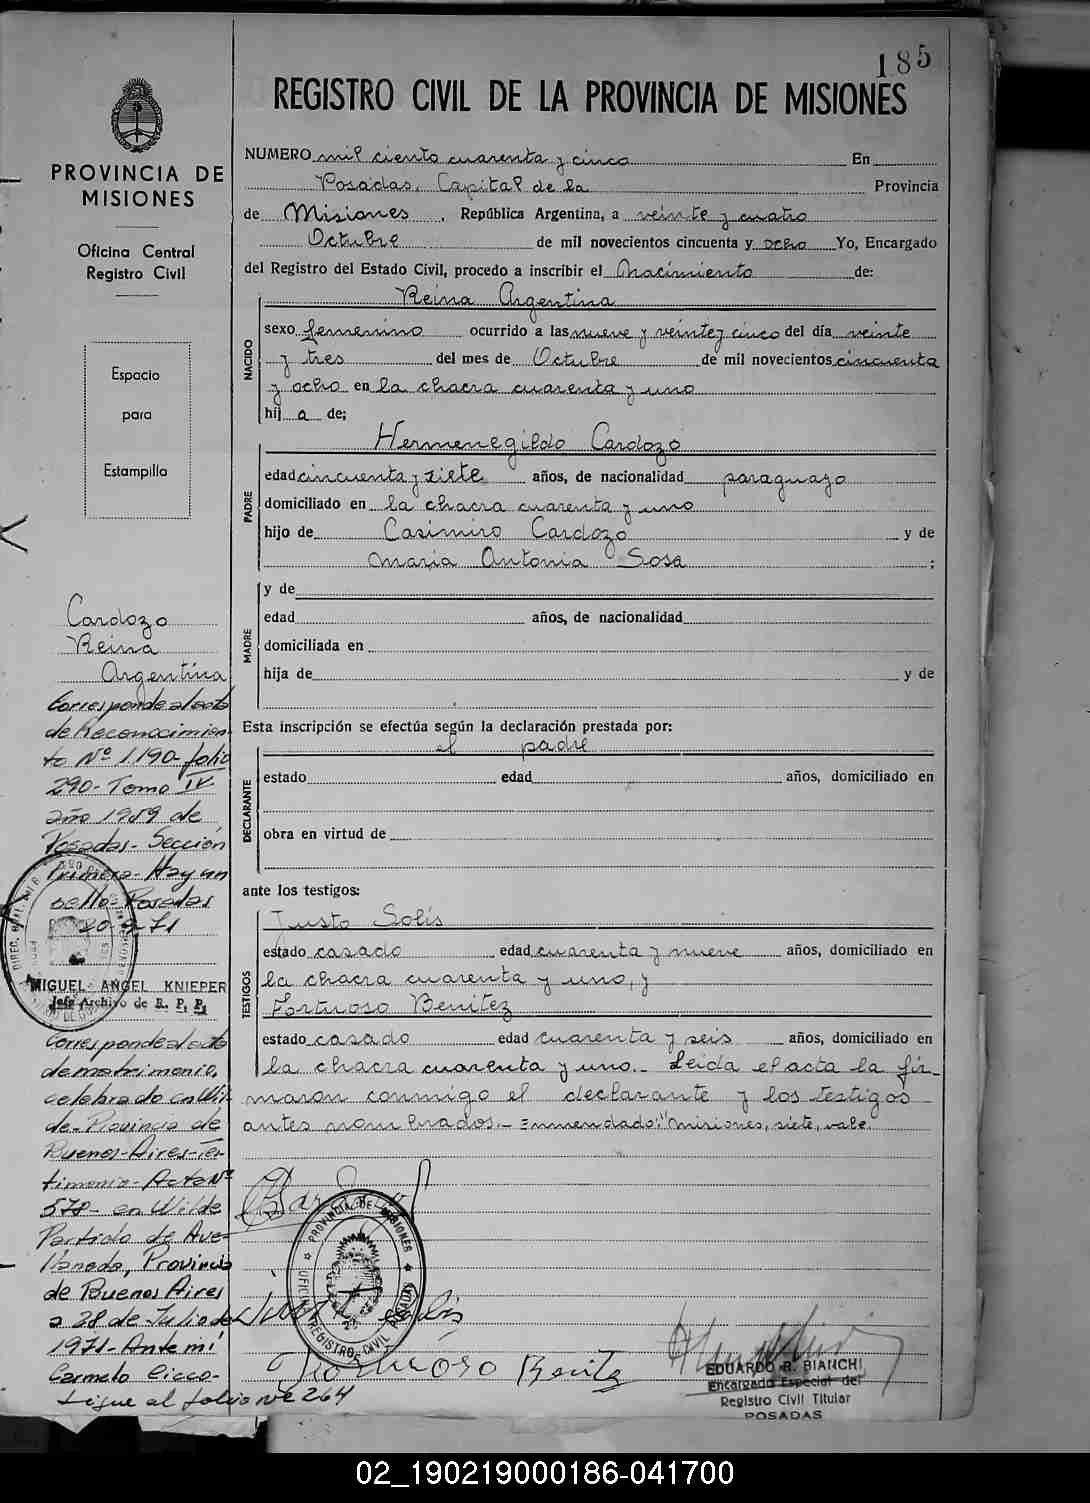 185
REGISTRO CIVIL DE LA PROVINCIA DE MISIONES
PROVINCIA DE
MISIONES
Oficina Central
Registro Civil
Espacio
para
Estampilla
NUMERO mil ciento cuarenta y cinco En
Posadas, Capital de la Provincia
de Misiones, República Argentina, a veinte y cuatro
Octubre de mil novecientos cincuenta y ocho Yo, Encargado
del Registro del Estado Civil, procedo a inscribir el Nacimiento de:
NACIDO
Reina Argentina
sexo femenino ocurrido a las nueve y veinte y cinco del día veinte
y tres del mes de Octubre de mil novecientos cincuenta
y ocho en la chacra cuarenta y uno
hij a de;
PADRE
Hermenegildo Cardozo
edad cincuenta y siete años, de nacionalidad paraguayo
domiciliado en la chacra cuarenta y uno
hijo de Casimiro Cardozo y de
Maria Antonia Sosa ;
MADRE
y de
edad años, de nacionalidad
domiciliada en
hija de y de
Esta inscripción se efectúa según la declaración prestada por:
DECLARANTE
el padre
estado edad años, domiciliado en
obra en virtud de
ante los testigos:
TESTIGOS
Justo Solis
estado casado edad cuarenta y nueve años, domiciliado en
la chacra cuarenta y uno, y
Fortuoso Benitez
estado casado edad cuarenta y seis años, domiciliado en
la chacra cuarenta y uno.- Leida el acta la fir-
maron conmigo el declarante y los testigos
antes nombrados.- Enmendado: "Misiones, siete, vale.
Cardozo
Reina
Argentina
Corresponde al acta
de Reconocimien
to Nº 1.190- folio
290- Tomo IV-
año 1959 de
Posadas- Sección
Primera- Hay un
sello- Posadas
20-9-71
MIGUEL ANGEL KNIEPER
Jefe Archivo de R. P. P.
Corresponde al acta
de matrimonio,
celebrado en Wil
de- Provincia de
Buenos-Aires-Tes
timonio- Acta Nº
578- en Wilde
Partido de Ave-
llaneda, Provincia
de Buenos Aires
a 28 de Julio de
1971- Ante mi
Carmelo Cicco-
Sigue al folio Nº 264
PROVINCIA DE MISIONES
REGISTRO CIVIL POSADAS
Benitez
EDUARDO R. BIANCHI
Encargado Especial del
Registro Civil Titular
POSADAS
02_190219000186-041700